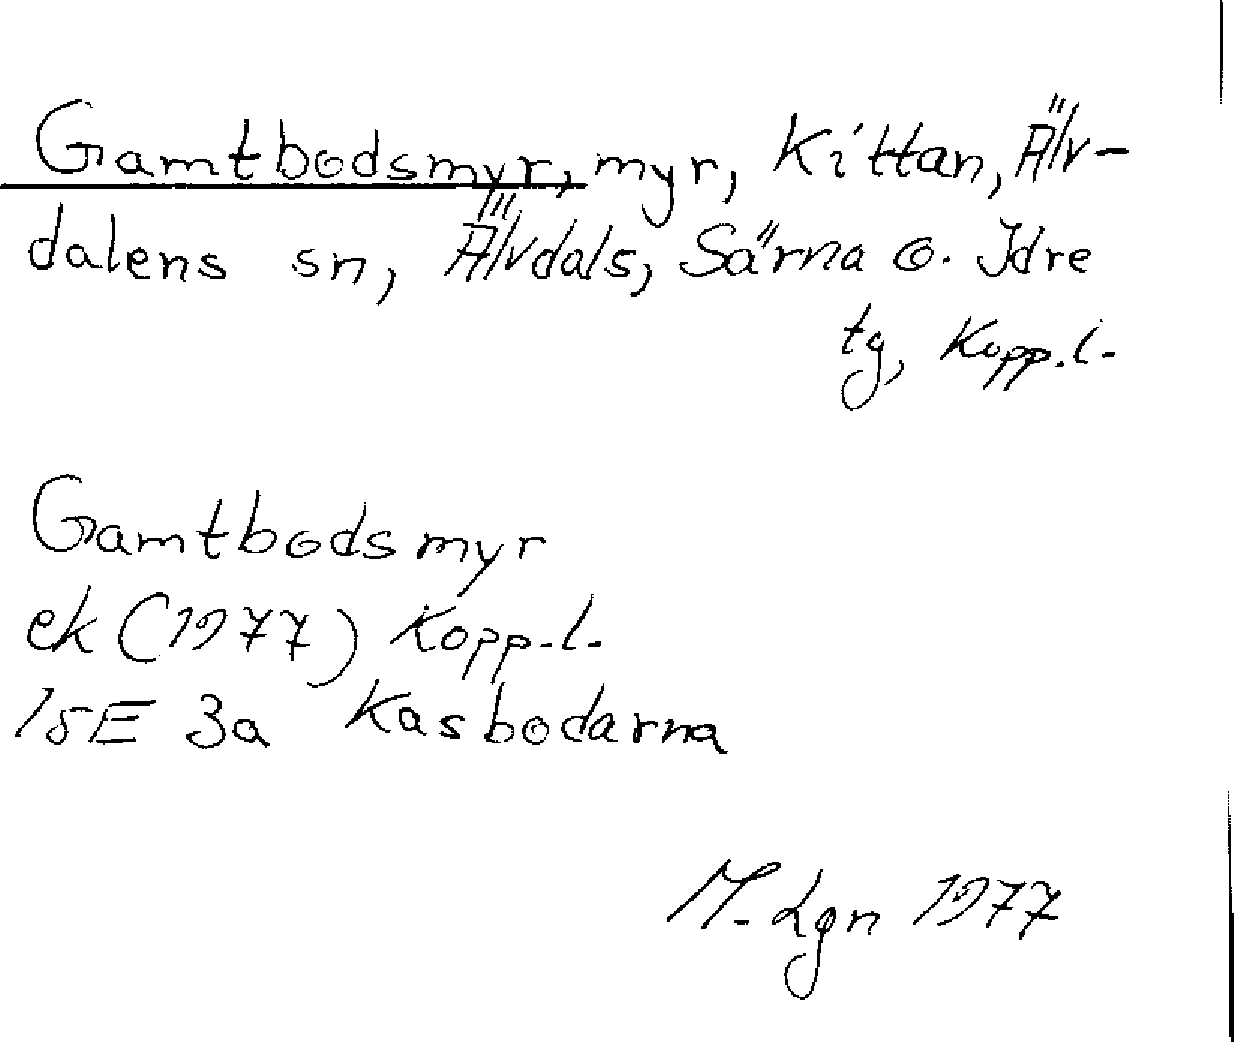 Gamtbodsmyr, myr, Kittan, Älv-
dalens sn, Älvdals, Särna o. Idre
tg, Kopp. l.
Gamtbodsmyr
ek (1977) Kopp. l.
15E 3a Kasbodarna
M. Lgn 1977